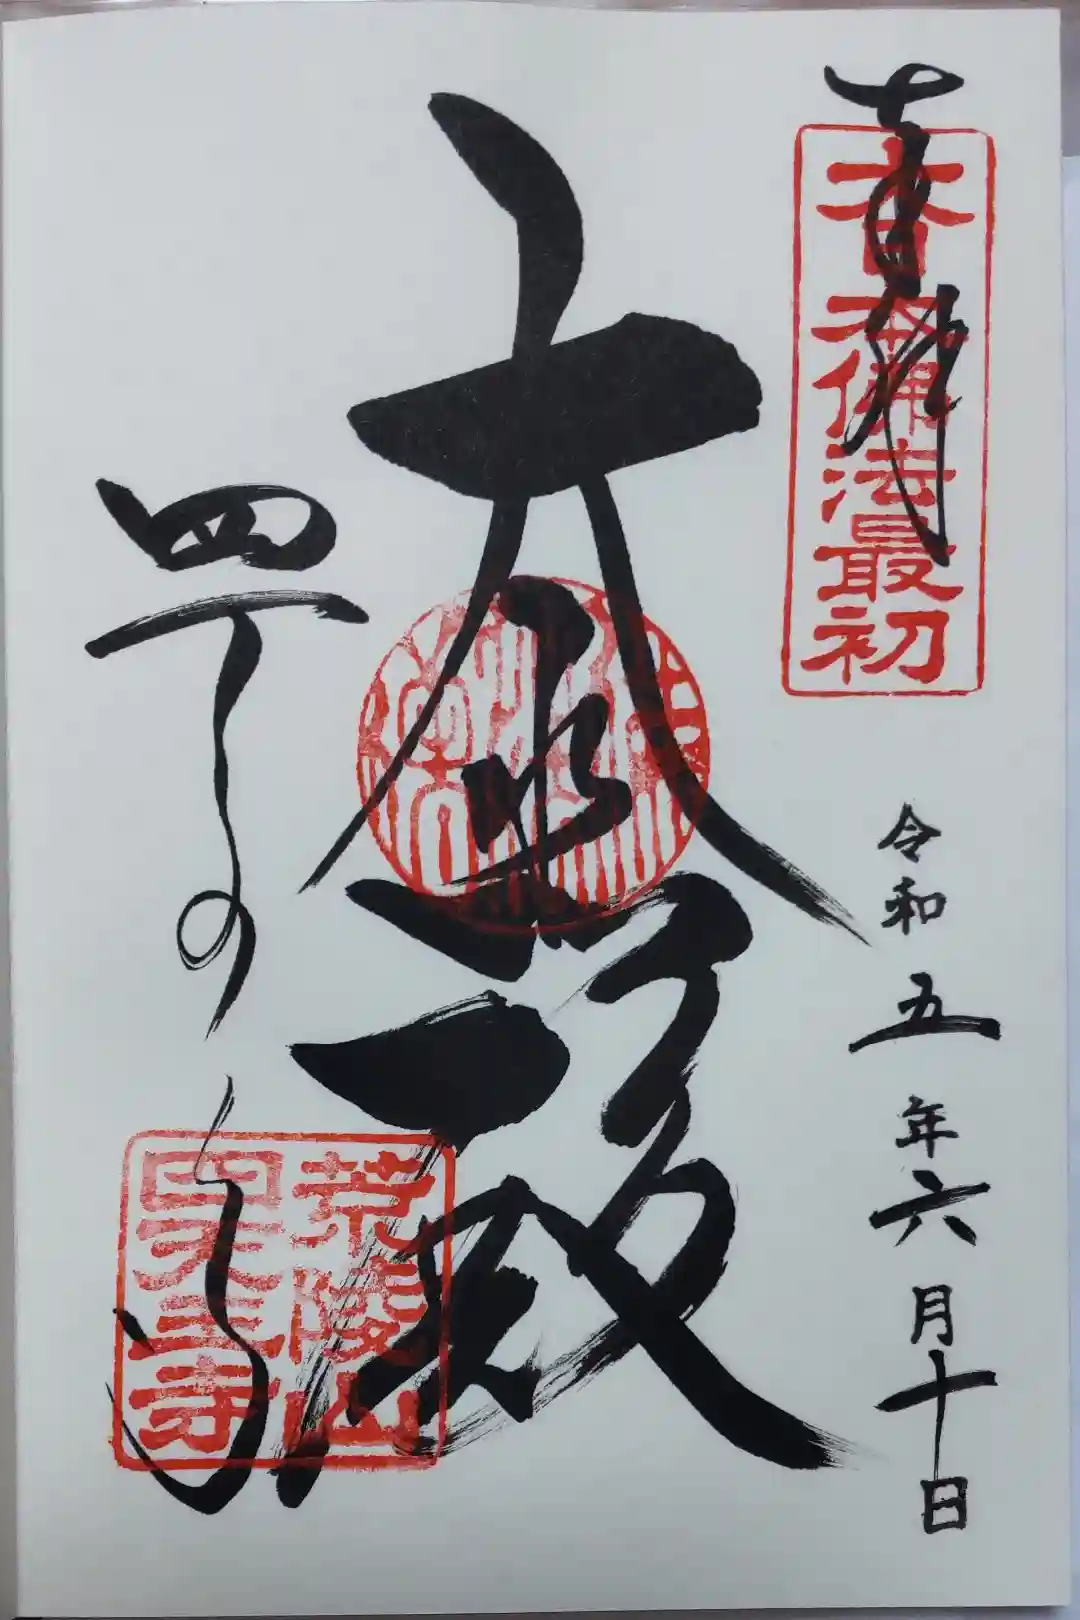 奉拝
大日本佛法最初
令和五年六月十日
大悲殿
四天王寺
荒陵山
四天王寺